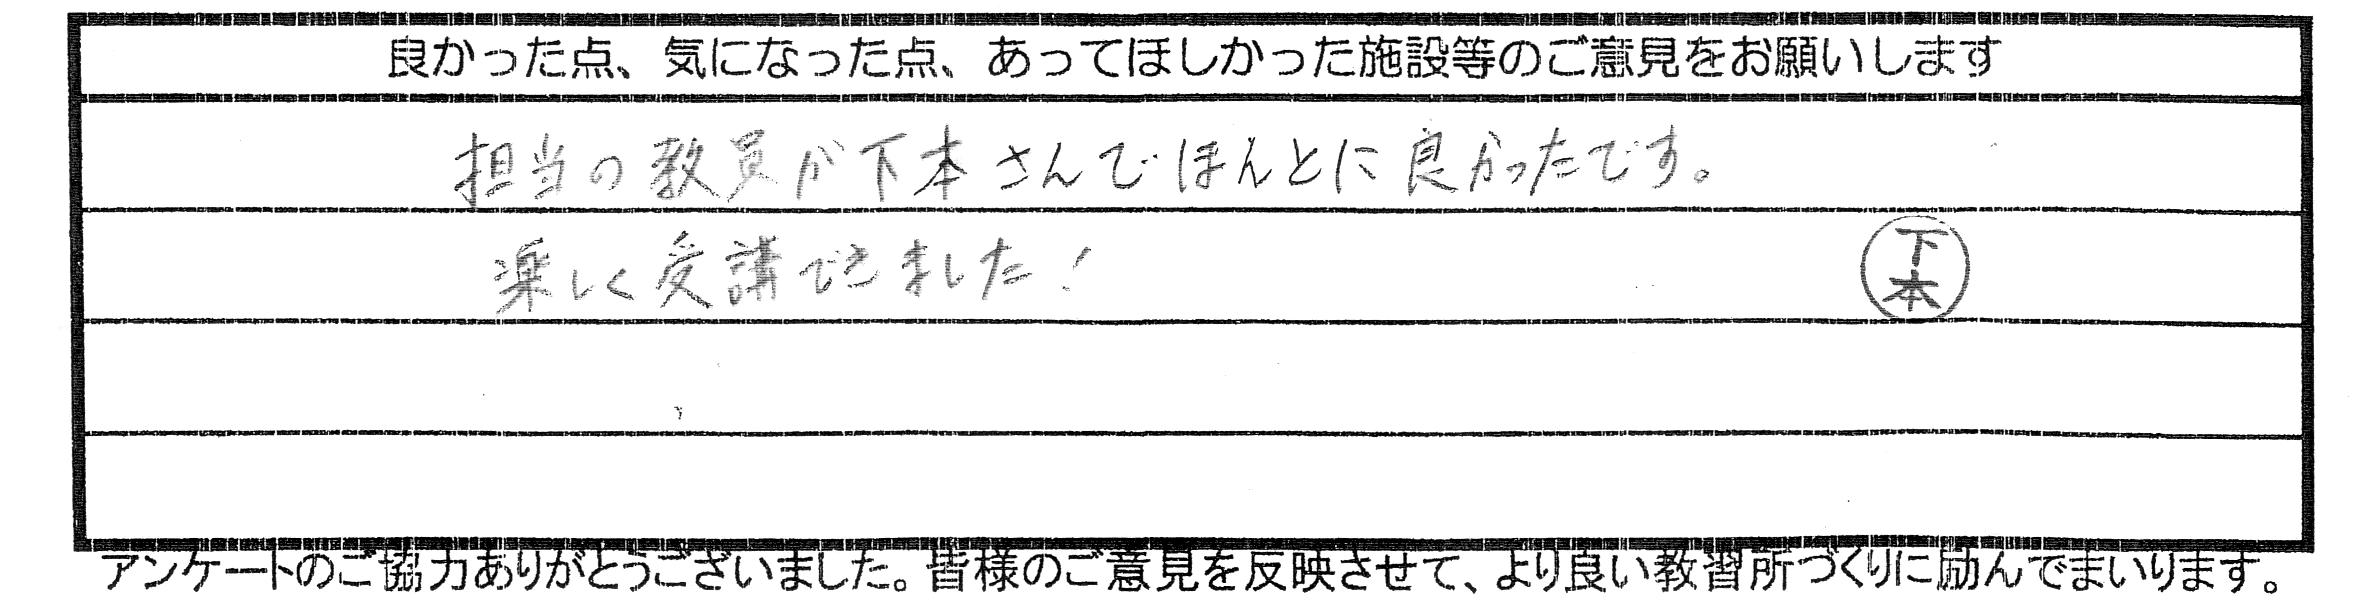 良かった点、気になった点、あってほしかった施設等のご意見をお願いします
担当の教員が下本さんでほんとに良かったです。
楽しく受講できました!
下本
アンケートのご協力ありがとうございました。皆様のご意見を反映させて、より良い教習所づくりに励んでまいります。